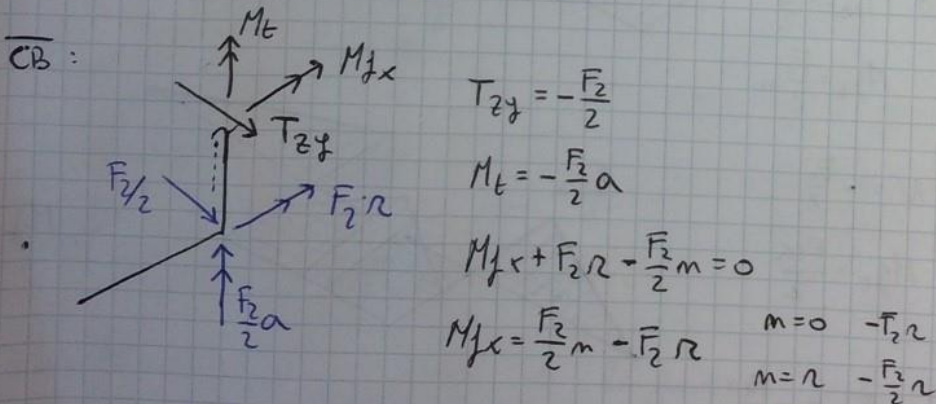 CB :
Mt
Mfx
Tzy
F2/2
F2·r
F2/2 a
Tzy = -F2/2
Mt = -F2/2 a
Mfx + F2 r - F2/2 m = 0
Mfx = F2/2 m - F2 r
m=0 -F2 r
m=r -F2/2 r